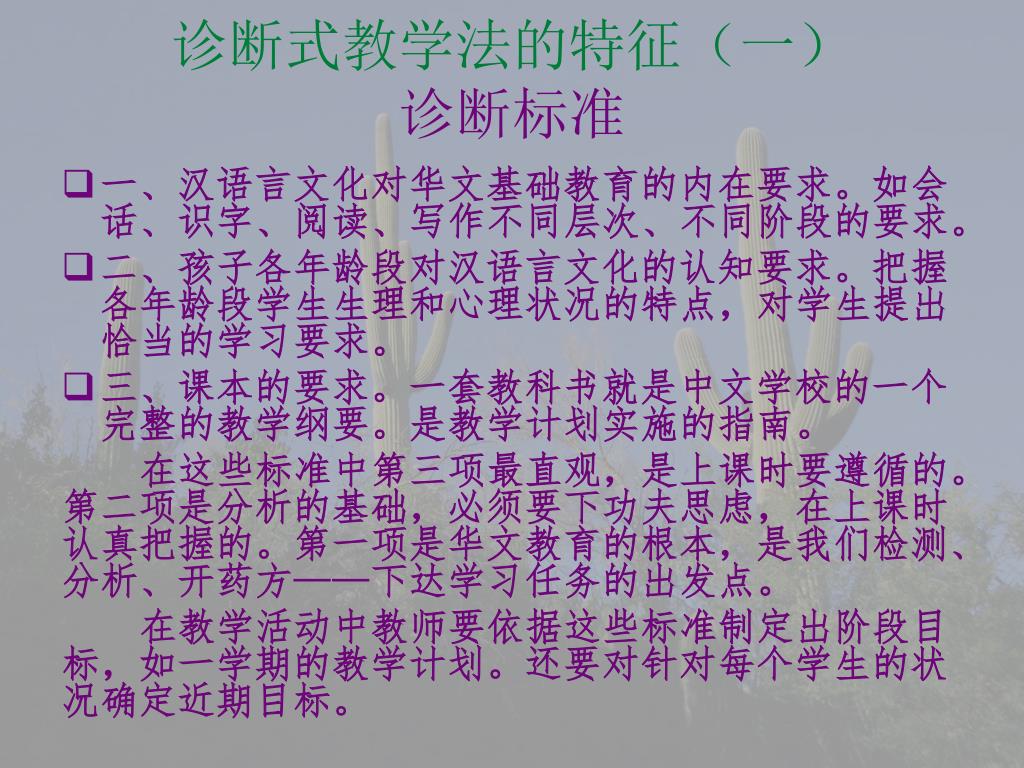 诊断式教学法的特征（一）
诊断标准
❑一、汉语言文化对华文基础教育的内在要求。如会
话、识字、阅读、写作不同层次、不同阶段的要求。
❑二、孩子各年龄段对汉语言文化的认知要求。把握
各年龄段学生生理和心理状况的特点，对学生提出
恰当的学习要求。
❑三、课本的要求。一套教科书就是中文学校的一个
完整的教学纲要。是教学计划实施的指南。
在这些标准中第三项最直观，是上课时要遵循的。
第二项是分析的基础，必须要下功夫思虑，在上课时
认真把握的。第一项是华文教育的根本，是我们检测、
分析、开药方——下达学习任务的出发点。
在教学活动中教师要依据这些标准制定出阶段目
标，如一学期的教学计划。还要对针对每个学生的状
况确定近期目标。